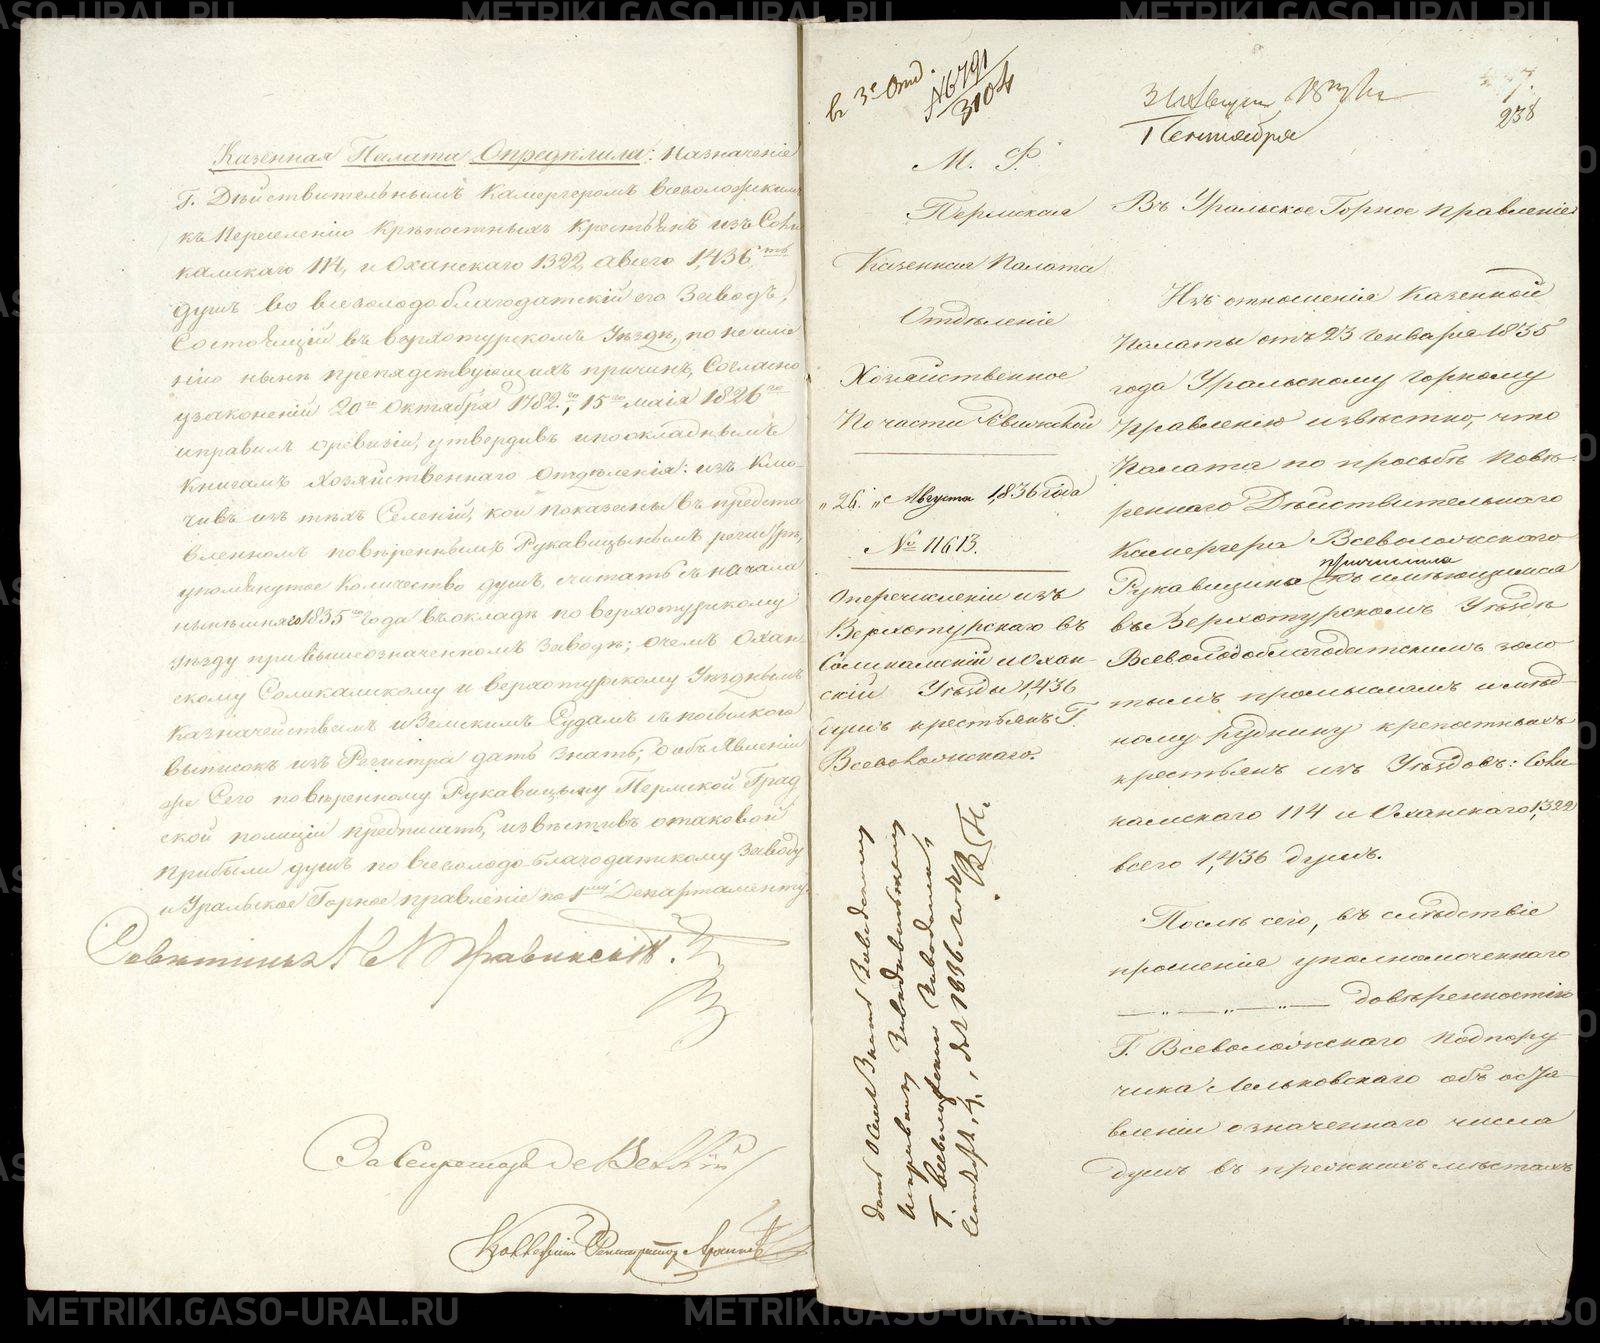 Казенная Палата Определила: Назначеніе
Г. Дѣйствительнымъ Камергеромъ Всеволожскимъ
къ переселенію Крѣпостныхъ Крестьянъ изъ Соли
камскаго 114, и Оханскаго 1322, а всего 1,436ть
душъ во Всеволодоблагодатскій его Заводъ,
Состоящій въ Верхотурскомъ Уѣздѣ, по неимѣ
нію нынѣ препядствующихъ причинъ, Согласно
узаконеній 20го Октября 1782го, 15го маія 1826го
и правилъ о ревизіи, утвердивъ и по окладнымъ
Книгамъ Хозяйственнаго Отдѣленія: изъ Клю-
чивъ изъ тѣхъ Селеній, кои показаны въ предста
вленномъ повѣреннымъ Рукавицынымъ регистрѣ,
упомянутое Количество душъ, считать съ начала
нынѣшняго 1835го года въ окладѣ по Верхотурскому
Уѣзду при вышеозначенномъ Заводѣ; о чемъ Охан
скому Соликамскому и Верхотурскому Уѣзднымъ
Казначействамъ и Земскимъ Судамъ съ посылкою
выписокъ изъ Регистра дать знать; о объявленіи
же Сего повѣренному Рукавицыну Пермской Град
ской полиціи предписать, извѣстивъ о таковой
прибыли душъ по Всеволодо-благодатскому Заводу
и Уральское Горное правленіе по 1му Департаменту.
Совѣтникъ
За Секретаря
Коллежскій Регистраторъ
въ 3е Отд.
№ 6791
3104
31 Августа
1 Сентября
7.
238
М. Ф.
Пермская
Казенная Палата
Отдѣленіе
Хозяйственное
По части Ревижской
„26„ Августа 1836 года
№ 11613.
О перечисленіи изъ
Верхотурскаго въ
Соликамскій и Охан-
скій Уѣзды 1,436
душъ крестьянъ Г.
Всеволожскаго.
Въ Уральское Горное правленіе
Изъ отношенія Казенной
Палаты отъ 23 Генваря 1835
года Уральскому Горному
Правленію извѣстно, что
Палата по просьбѣ повѣ-
реннаго Дѣйствительнаго
Камергера Всеволожскаго
причислила
Рукавицына къ имѣющимся
въ Верхотурскомъ Уѣздѣ
Всеволодоблагодатскимъ золо
тымъ промысламъ и мѣд-
ному руднику крепостныхъ
крестьянъ изъ Уѣздовъ: Соли-
камскаго 114 и Оханскаго 1,322
всего 1,436 душъ.
Послѣ сего, въ слѣдствіе
прошенія уполномоченнаго
довѣренностію
Г. Всеволожскаго Подпору-
чика Мельковскаго объ оста-
вленіи означеннаго числа
душъ въ прежнихъ мѣстахъ